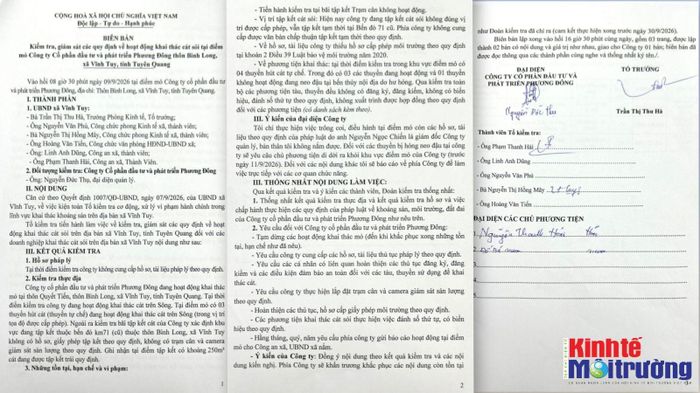 CỘNG HOÀ XÃ HỘI CHỦ NGHĨA VIỆT NAM
Độc lập - Tự do - Hạnh phúc
BIÊN BẢN
Kiểm tra, giám sát các quy định về hoạt động khai thác cát sỏi tại điểm
mỏ Công ty Cổ phần đầu tư và phát triển Phương Đông thôn Bình Long,
xã Vĩnh Tuy, tỉnh Tuyên Quang
Vào hồi 08 giờ 30 phút ngày 09/9/2026 tại điểm mỏ Công ty cổ phần đầu tư
và phát triển Phương Đông, địa chỉ: Thôn Bình Long, xã Vĩnh Tuy, tỉnh Tuyên Quang.
I. THÀNH PHẦN
1. UBND xã Vĩnh Tuy:
- Bà Trần Thị Thu Hà, Trưởng Phòng Kinh tế, Tổ trưởng;
- Ông Nguyễn Văn Phú, Công chức phòng Kinh tế xã, thành viên;
- Bà Nguyễn Thị Hồng Mây, Công chức phòng Kinh tế xã, thành viên;
- Ông Hoàng Văn Tiến, Công chức văn phòng HĐND-UBND xã;
- Ông: Linh Anh Dũng, Công an xã, thành viên;
- Ông: Phạm Thanh Hải, Công an xã, Thành Viên.
2. Đối tượng kiểm tra: Công ty Cổ phần đầu tư và phát triển Phương Đông
- Ông: Nguyễn Đức Thụ, đại diện quản lý.
II. NỘI DUNG
Căn cứ theo Quyết định 1007/QĐ-UBND, ngày 07/9/2026, của UBND xã
Vĩnh Tuy, về việc kiện toàn tổ kiểm tra cơ động, xử lý vi phạm hành chính trong
lĩnh vực khai thác khoáng sản trên địa bàn xã Vĩnh Tuy.
Tổ kiểm tra tiến hành làm việc về kiểm tra, giám sát các quy định về hoạt
động khai thác cát sỏi trên địa bàn xã Vĩnh Tuy, tỉnh Tuyên Quang đối với các
doanh nghiệp khai thác cát sỏi trên địa bàn xã Vĩnh Tuy nội dung như sau:
III. KẾT QUẢ KIỂM TRA
1. Hồ sơ pháp lý
Tại thời điểm kiểm tra công ty không cung cấp hồ sơ, tài liệu pháp lý theo quy định.
2. Kiểm tra thực địa
Công ty cổ phần đầu tư và phát triển Phương Đông đang hoạt động khai thác
mỏ tại thôn Quyết Tiến, thôn Bình Long, xã Vĩnh Tuy, tỉnh Tuyên Quang. Tại thời
điểm kiểm tra công ty đang hoạt động khai thác cát trên Sông. Tại điểm mỏ có 03
thuyền hút cát (thuyền tự chế) đang hoạt động khai thác cát trên Sông (trong vị trí
tọa độ được cấp phép). Ngoài ra kiểm tra bãi tập kết cát của Công ty xác định khu
vực đang tập kết thuộc bên đó km71 (cũ) thuộc thôn Bình Long, xã Vĩnh Tuy
không có hồ sơ, giấy phép tập kết theo quy định, không có trạm cân và camera
giám sát sản lượng theo quy định. Ghi nhận tại điểm tập kết có khoảng 250m³
cát đang được tập kết trái quy định.
3. Những tồn tại, hạn chế và vi phạm:
1
- Tiến hành kiểm tra tại bãi tập kết Trạm cân không hoạt động.
- Vị trí tập kết cát sỏi: Hiện nay công ty đang tập kết cát sỏi không đúng vị
trí được cấp phép, vẫn tập kết tạm thời tại Bến đò 71 cũ. Phía công ty không cung
cấp được văn bản chấp thuận tập kết tạm thời của cấp có thẩm quyền.
- Về hồ sơ, tài liệu công ty thiếu hồ sơ cấp phép môi trường theo quy định
tại khoản 2 Điều 39 Luật bảo vệ môi trường năm 2020.
- Về phương tiện khai thác: tại thời điểm kiểm tra trong khu vực điểm mỏ có
04 thuyền hút cát tự chế. Trong đó có 03 các thuyền đang hoạt động và 01 thuyền
không hoạt động đang neo đậu tại bến thủy nội địa do hư hỏng. Qua kiểm tra toàn
bộ các phương tiện, thuyền đều không có đăng ký, đăng kiểm, không có biển
hiệu, đánh số thứ tự theo quy định, không xuất trình được hợp đồng theo quy định
đối với các phương tiện (có danh sách kèm theo).
II. Ý kiến của đại diện Công ty
Tôi chỉ thực hiện việc trông coi, điều hành tại điểm mỏ còn các hồ sơ, tài
liệu theo quy định của pháp luật do anh Nguyễn Ngọc Chiến là giám đốc Công ty
quản lý, bản thân tôi không nắm được. Đối với các thuyền bị hỏng neo đậu tại công
ty sẽ yêu cầu chủ phương tiện di dời ra khỏi khu vực điểm mỏ của Công ty (trước
ngày 11/9/2026). Đối với các nội dung khác tôi sẽ báo cáo về phía Công ty để làm
việc trực tiếp với các cơ quan chức năng.
III. THỐNG NHẤT NỘI DUNG LÀM VIỆC:
Qua kết quả kiểm tra và ý kiến các thành viên, Đoàn kiểm tra thống nhất:
1. Thống nhất kết quả kiểm tra thực địa và kết quả kiểm tra hồ sơ về việc
chấp hành thực hiện các quy định của pháp luật về khoáng sản, môi trường, đất đai
của Công ty cổ phần đầu tư và phát triển Phương Đông như nêu trên.
2. Yêu cầu đối với Công ty cổ phần đầu tư và phát triển Phương Đông:
- Tạm dừng các hoạt động khai thác mỏ (đến khi khắc phục xong những tồn
tại, hạn chế như đã nêu).
- Yêu cầu công ty cung cấp các hồ sơ, tài liệu thủ tục pháp lý theo quy định.
- Yêu cầu các cá nhân có liên quan hoàn thiện các thủ tục đăng ký, đăng
kiểm và các điều kiện đảm bảo an toàn đối với các tàu, thuyền sử dụng để khai
thác cát.
- Yêu cầu công ty thực hiện lắp đặt trạm cân và camera giám sát sản lượng
theo quy định.
- Hoàn thiện các thủ tục, hồ sơ cấp giấy phép môi trường theo quy định.
- Các phương tiện khai thác cát sỏi thực hiện việc đánh số thứ tự, có biển
hiệu theo quy định.
- Hằng tháng, quý, năm yêu cầu phía công ty gửi báo cáo hoạt động tại điểm
mỏ cho Công an xã, UBND xã nắm.
- Ý kiến của Công ty: Đồng ý nội dung theo kết quả kiểm tra và các nội
dung kiến nghị. Phía Công ty sẽ khẩn trương khắc phục các nội dung còn tồn tại
2
như Đoàn kiểm tra đã chỉ ra (cam kết thực hiện xong trước ngày 30/9/2026).
Biên bản lập xong vào hồi 16 giờ 30 phút cùng ngày, gồm 03 trang, được lập
thành 02 bản có nội dung và giá trị như nhau, giao cho Công ty 01 bản; biên bản đã
được đọc thông qua các thành phần cùng nghe và thống nhất ký tên./.
ĐẠI DIỆN
CÔNG TY CỔ PHẦN ĐẦU TƯ VÀ
PHÁT TRIỂN PHƯƠNG ĐÔNG
TỔ TRƯỞNG
Nguyễn Đức Thụ
Trần Thị Thu Hà
Thành viên Tổ kiểm tra:
- Ông Phạm Thanh Hải
- Ông Linh Anh Dũng
- Ông Nguyễn Văn Phú
- Bà Nguyễn Thị Hồng Mây
- Ông Hoàng Văn Tiến
ĐẠI DIỆN CÁC CHỦ PHƯƠNG TIỆN
1. Nguyễn Thanh
2.
3.
4.
5.
Kinh tế
Môi trường